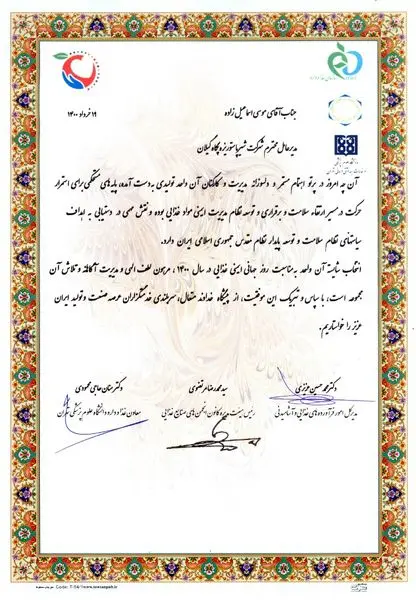 ۱۹ خرداد ۱۴۰۰
جناب آقای موسی اسماعیل زاده
مدیرعامل محترم شرکت شیر پاستوریزه پگاه گیلان
آن چه امروز در پرتو اهتمام مستمر و دلسوزانه مدیریت و کارکنان آن واحد تولیدی به دست آمده، پایه های مستحکمی برای استمرار
حرکت در مسیر ارتقاء سلامت و برقراری و توسعه نظام مدیریت ایمنی مواد غذایی بوده و نقش مهمی در دستیابی به اهداف
سیاستهای نظام سلامت و توسعه پایدار نظام مقدس جمهوری اسلامی ایران دارد.
انتخاب شایسته آن واحد به مناسبت روز جهانی ایمنی غذایی در سال ۱۴۰۰، مرهون لطف الهی و مدیریت آگاهانه و تلاش آن
مجموعه است، با سپاس و تبریک این موفقیت، از پیشگاه خداوند متعال، سربلندی خدمتگزاران عرصه صنعت و تولید ایران
عزیز را خواستاریم.
دکتر محمد حسین عزیزی
مدیرکل امور فرآورده های غذایی و آشامیدنی
سید محمدرضا مرتضوی
رئیس هیئت مدیره کانون انجمن های صنایع غذایی
دکتر سنان حاجی محمودی
معاون غذا و دارو دانشگاه علوم پزشکی تهران